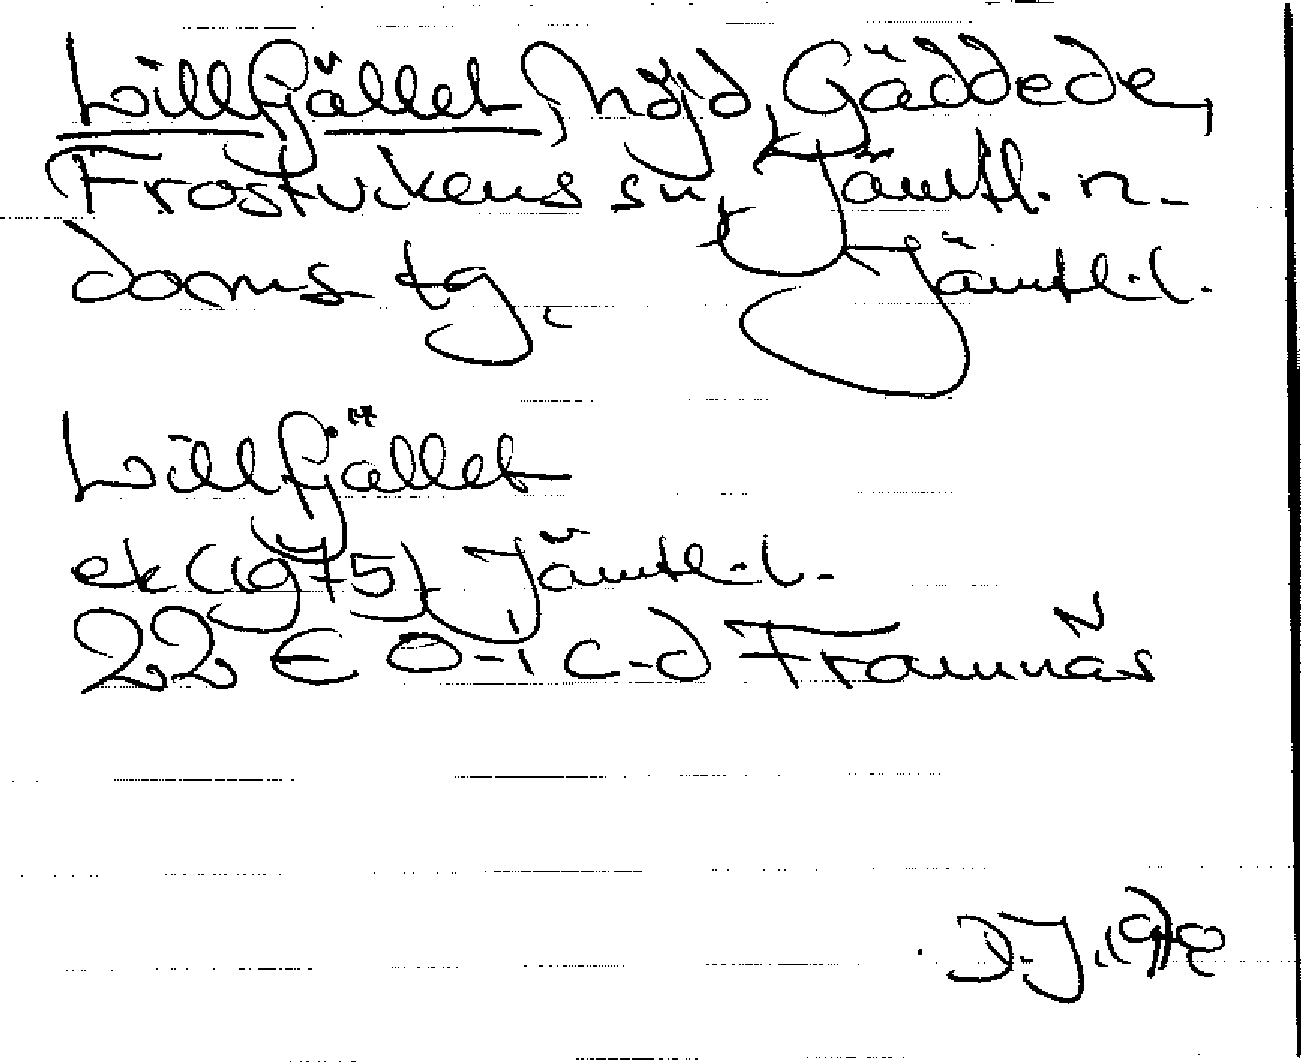 Lillfjället, höjd, Gäddede,
Frostvikens sn, Jämtl. n.
doms. tg. Jämtl. l.
Lillfjället
ek (1975) Jämtl. l.
22 E 0-1 c-d Framnäs
D.J. 1978